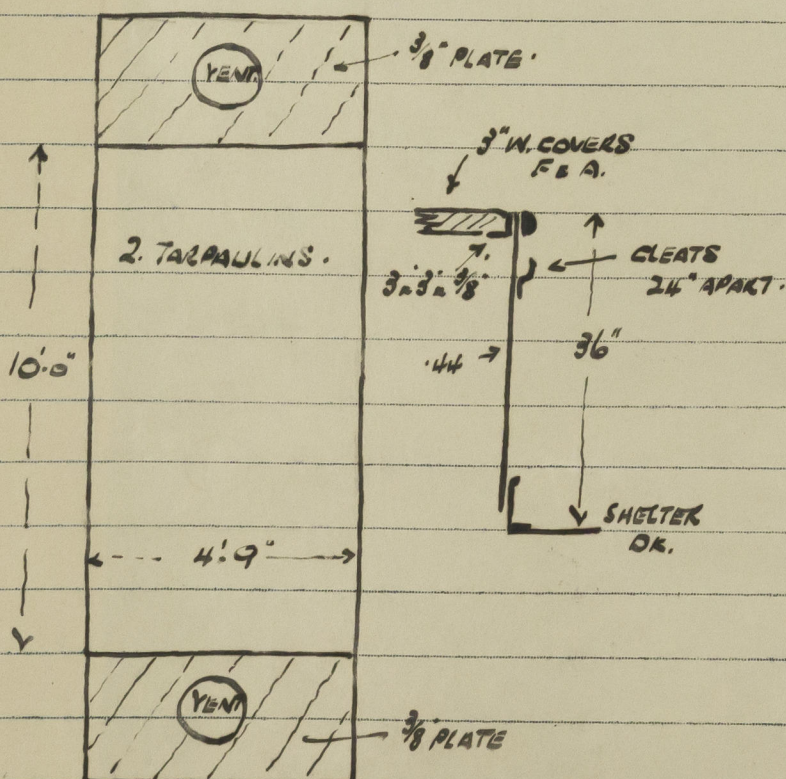 VENT.
3/8" PLATE.
3" W. COVERS
F & A.
2. TARPAULINS.
3"x3"x3/8"
CLEATS
24" APART.
10'.0"
.44
36"
SHELTER
DK.
4'.9"
VENT
3/8" PLATE